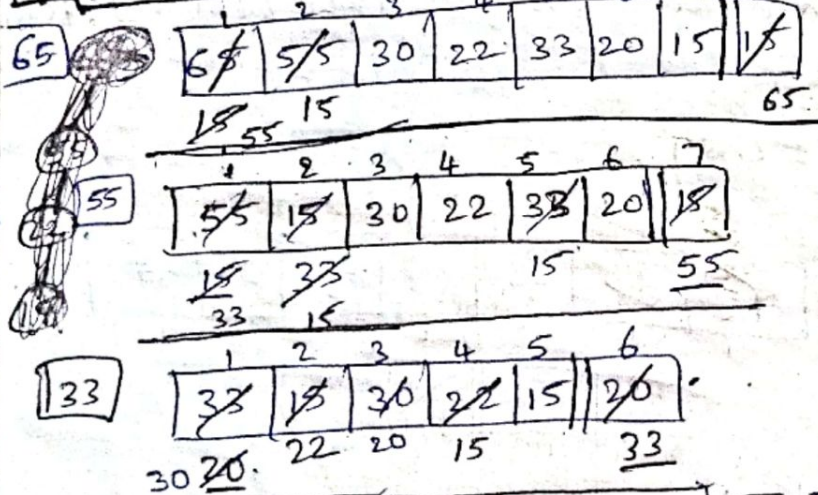 1 2 3
65 65 55 30 22 33 20 15 15
15 15 65
55
1 2 3 4 5 6 7
55 55 15 30 22 33 20 15
15 33 15 55
33 15
1 2 3 4 5 6
33 33 15 30 22 15 20
30 20 22 20 15 33